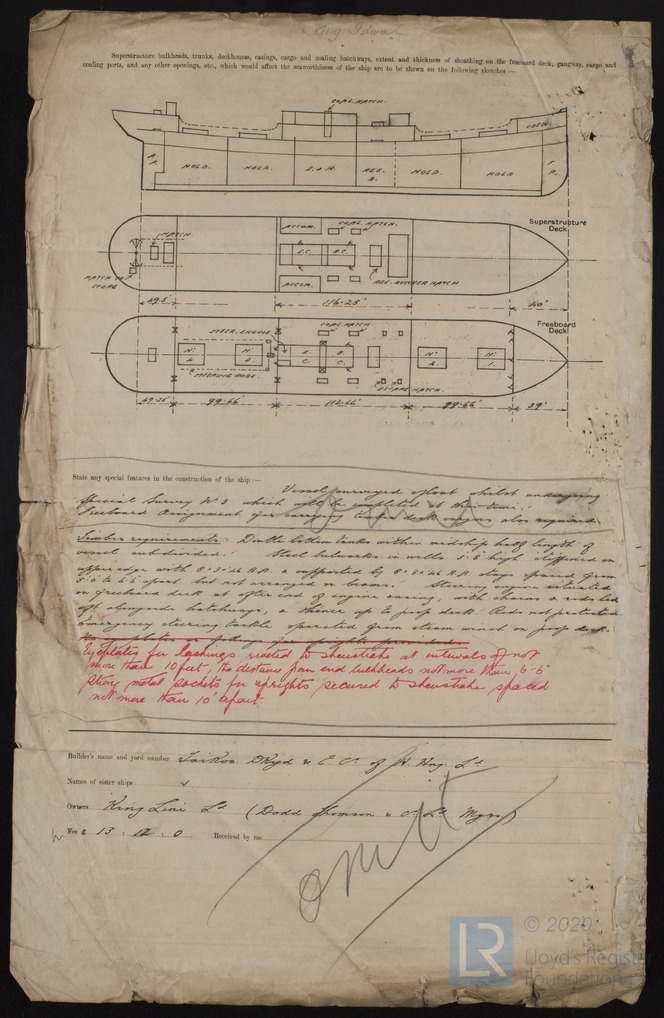 King Idwal
Superstructure bulkheads, trunks, deckhouses, casings, cargo and coaling hatchways, extent and thickness of sheathing on the freeboard deck, gangway, cargo and
coaling ports, and any other openings, etc., which would affect the seaworthiness of the ship are to be shewn on the following sketches:—
COAL HATCH.
A.P. HOLD. HOLD. RES. HOLD. HOLD
HATCH
ACCOM. COAL HATCH.
Superstructure
Deck
HATCH TO
STORE
ACCOM. RES. BUNKER HATCH
116·25' 40'
STEER. ENGINE COAL HATCH
Freeboard
Deck
Nº 4 Nº 3 Nº 2 Nº 1.
STEERING RODS. ESCAPE HATCH.
99·66' 112·66' 99·66' 39'
State any special features in the construction of the ship:—
Vessel surveyed afloat whilst undergoing
Special Survey Nº 3 which will be completed at this time.
Freeboard Assignment for carrying timber deck cargoes also required.
Timber requirements: Double bottom tanks within midship half length of
vessel subdivided. Steel bulwarks in wells high stiffened on
upper edge with & supported by stays spaced from
apart but not arranged on beams. Steering engine situated
on freeboard deck at after end of engine casing, with chains & rods led
aft alongside hatchways, & thence up to poop deck. Rods not protected
Emergency steering tackle operated from steam winch on poop deck.
No eyeplates or fittings for uprights provided.
Eyeplates for lashings riveted to sheerstrake at intervals of not
more than 10 feet, the distance from end bulkheads not more than 6'-6"
Strong metal sockets for uprights secured to sheerstrake spaced
not more than 10' apart.
Builder's name and yard number Taikoo D'Kyd & E. C. of H. Kong. Ld
Names of sister ships
Owners King Line Ld (Dodd Thomson & Co Ld Mgrs)
Fee £ 13 : 12 : 0 Received by me
omit
LR
© 2020
Lloyd's Register
Foundation